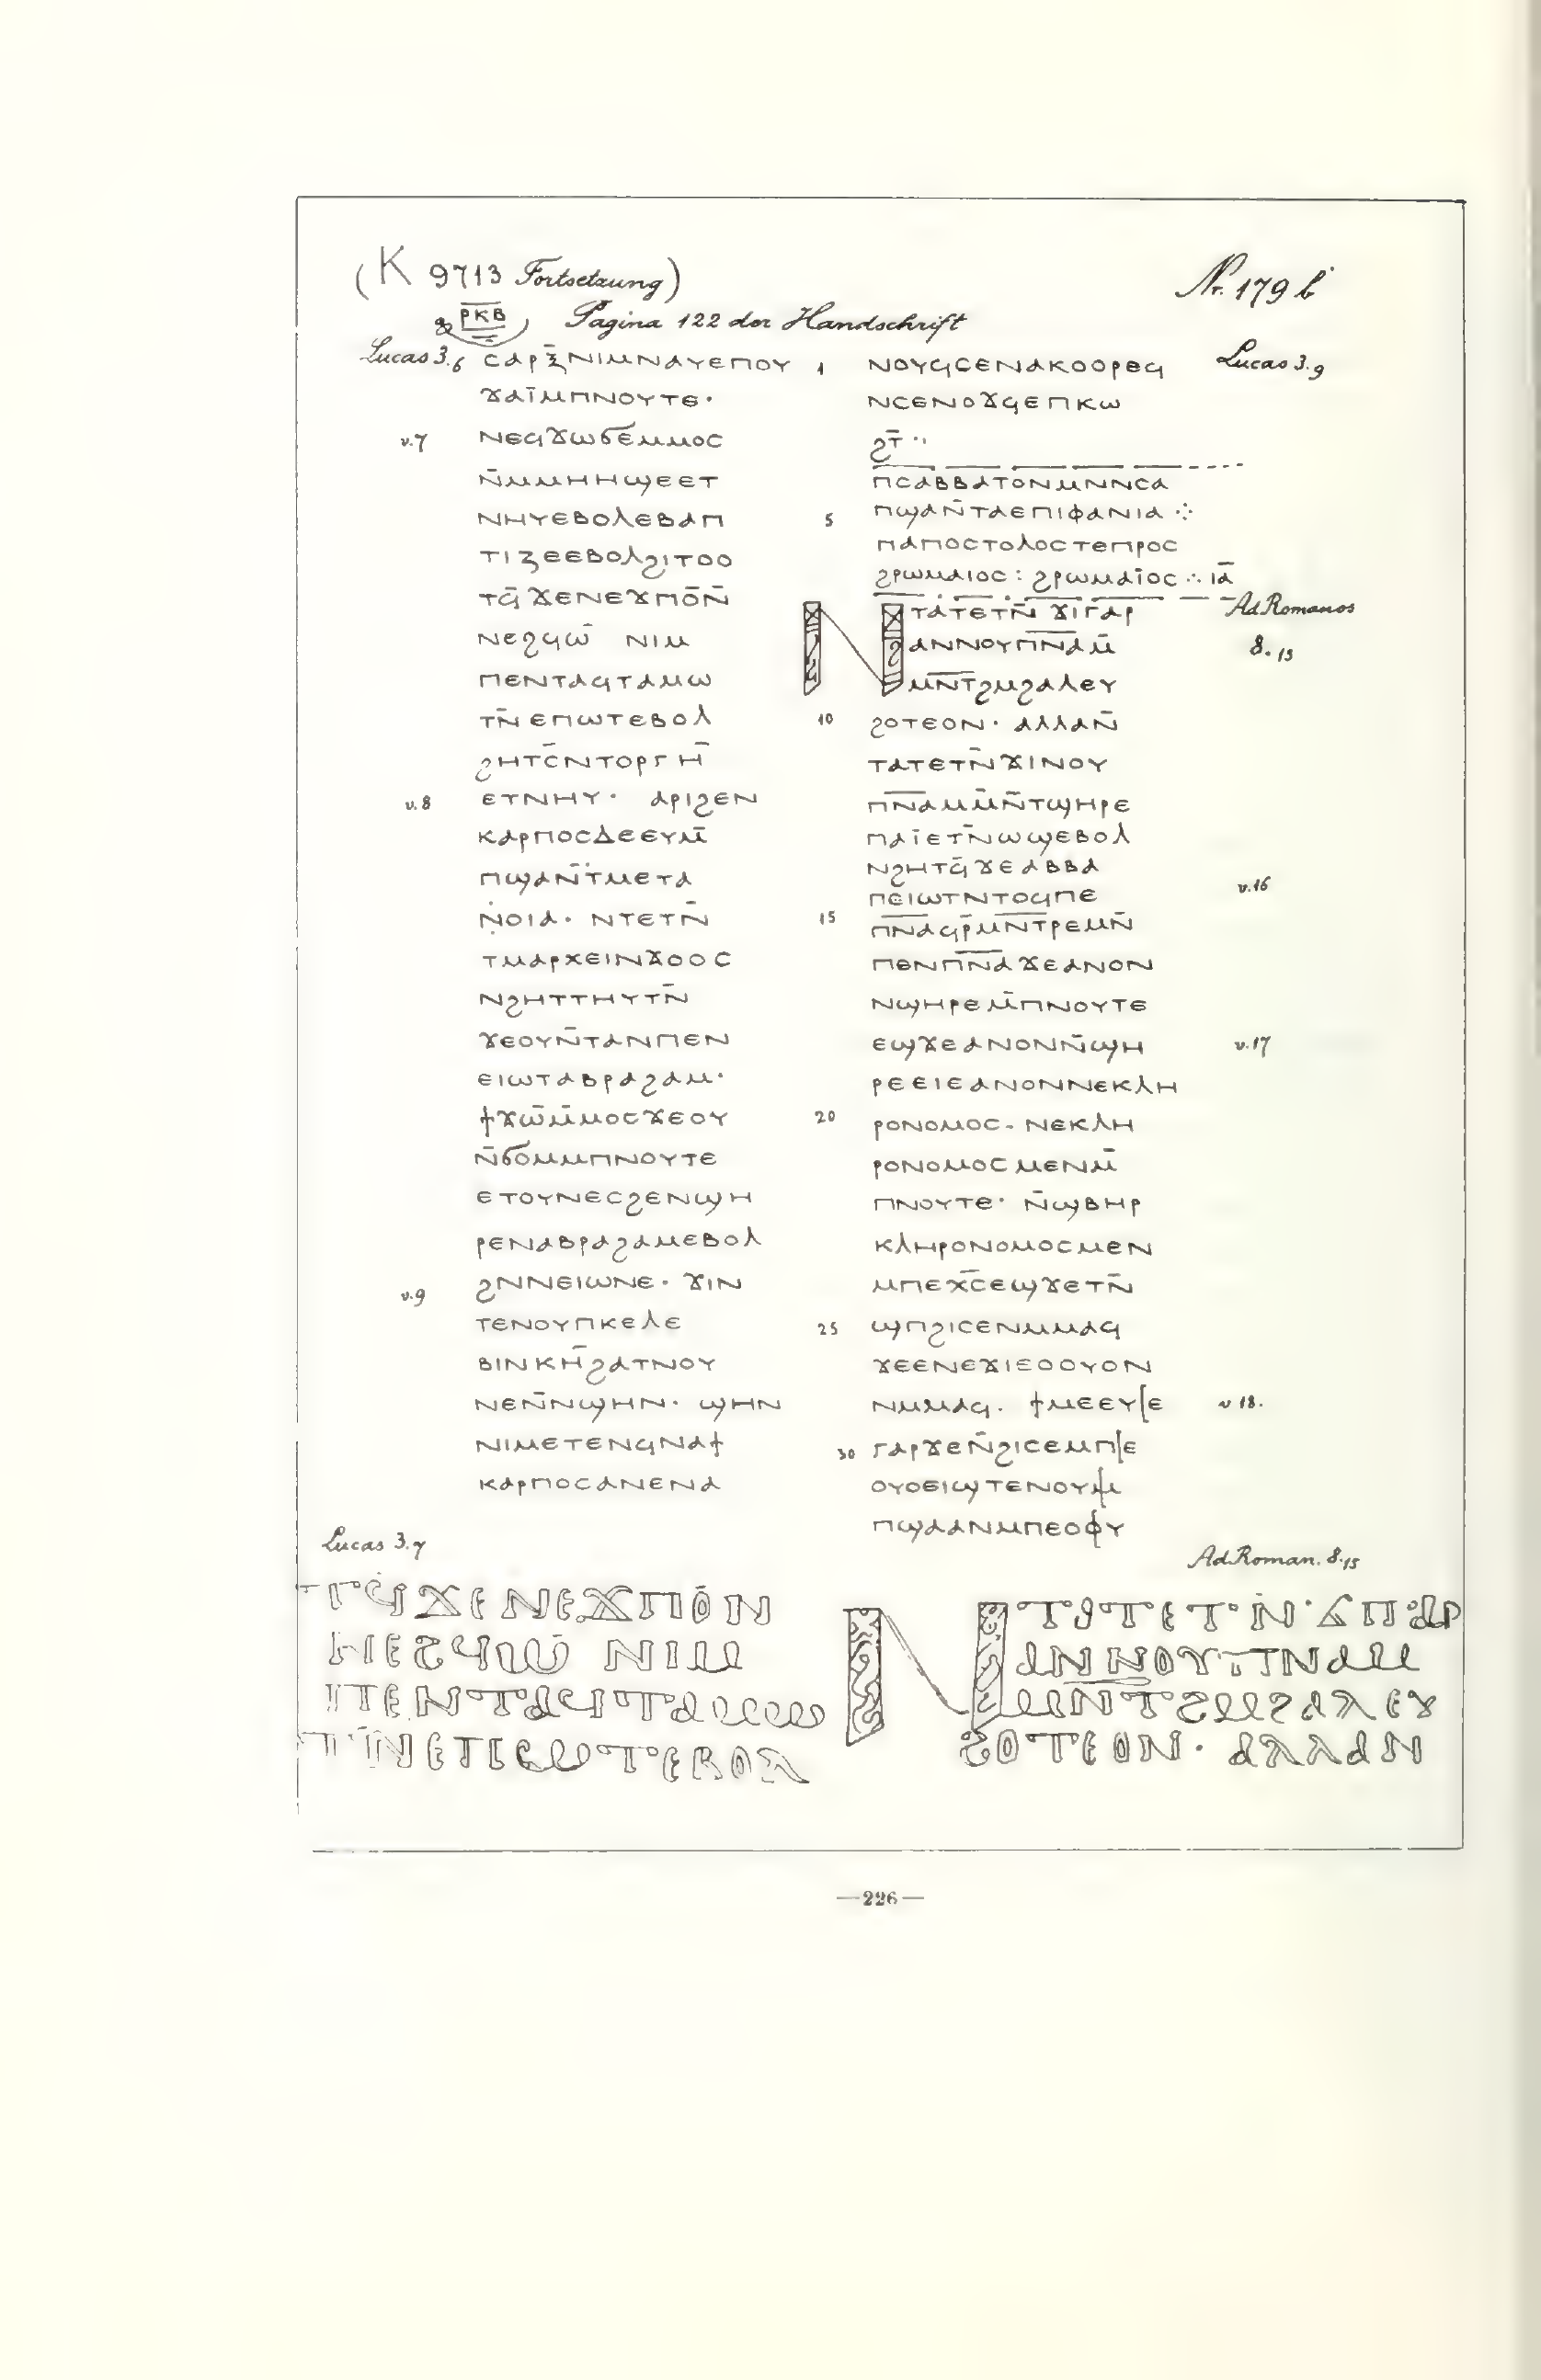 (K 9713 Fortsetzung)
Nr. 179 b
ⲣⲕⲃ Pagina 122 der Handschrift
Lucas 3.6 ⲥⲁⲣⲝ̄ⲛⲓⲙⲛⲁⲩⲉⲡⲟⲩ
ϫⲁⲓ̈ⲙⲡⲛⲟⲩⲧⲉ·
v.7 ⲛⲉϥϫⲱϭⲉ̄ⲙⲙⲟⲥ
ⲛ̄ⲙⲙⲏⲏϣⲉⲉⲧ
ⲛⲏⲩⲉⲃⲟⲗⲉⲃⲁⲡ
ⲧⲓⲍⲉⲉⲃⲟⲗϩⲓⲧⲟⲟ
ⲧϥ̄ϫⲉⲛⲉϫⲡⲟ̄ⲛ̄
ⲛⲉϩϥⲱ̄ ⲛⲓⲙ
ⲡⲉⲛⲧⲁϥⲧⲁⲙⲱ
ⲧⲛ̄ⲉⲡⲱⲧⲉⲃⲟⲗ
ϩⲏⲧⲥ̄ⲛⲧⲟⲣⲅⲏ̄
v.8 ⲉⲧⲛⲏⲩ· ⲁⲣⲓϩⲉⲛ
ⲕⲁⲣⲡⲟⲥⲇⲉⲉⲩⲙ̄
ⲡϣⲁⲛ̄ⲧⲙⲉⲧⲁ
ⲛⲟⲓⲁ· ⲛⲧⲉⲧⲛ̄
ⲧⲙⲁⲣⲭⲉⲓⲛϫⲟⲟⲥ
ⲛϩⲏⲧⲧⲏⲩⲧⲛ̄
ϫⲉⲟⲩⲛ̄ⲧⲁⲛⲡⲉⲛ
ⲉⲓⲱⲧⲁⲃⲣⲁϩⲁⲙ·
ϯϫⲱ̄ⲙ̄ⲙⲟⲥϫⲉⲟⲩ
ⲛ̄ϭⲟⲙⲙⲡⲛⲟⲩⲧⲉ
ⲉⲧⲟⲩⲛⲉⲥϩⲉⲛϣⲏ
ⲣⲉⲛⲁⲃⲣⲁϩⲁⲙⲉⲃⲟⲗ
v.9 ϩⲛⲛⲉⲓⲱⲛⲉ· ϫⲓⲛ
ⲧⲉⲛⲟⲩⲡⲕⲉⲗⲉ
ⲃⲓⲛⲕⲏ̄ϩⲁⲧⲛⲟⲩ
ⲛⲉⲛ̄ⲛϣⲏⲛ· ϣⲏⲛ
ⲛⲓⲙⲉⲧⲉⲛϥⲛⲁϯ
ⲕⲁⲣⲡⲟⲥⲁⲛⲉⲛⲁ
1 ⲛⲟⲩϥⲥⲉⲛⲁⲕⲟⲟⲣⲉϥ Lucas 3.9
ⲛⲥⲉⲛⲟϫϥⲉⲡⲕⲱ
ϩⲧ̄
ⲡⲥⲁⲃⲃⲁⲧⲟⲛⲙⲛⲛⲥⲁ
5 ⲡϣⲁⲛ̄ⲧⲁⲉⲡⲓⲫⲁⲛⲓⲁ ⁘
ⲡⲁⲡⲟⲥⲧⲟⲗⲟⲥⲧⲉⲡⲣⲟⲥ
ϩⲣⲱⲙⲁⲓⲟⲥ : ϩⲣⲱⲙⲁⲓ̈ⲟⲥ ∴ ⲓⲁ̄
ⲛⲧⲁⲧⲉⲧⲛ̄ϫⲓⲅⲁⲣ Ad Romanos
ⲁⲛⲛⲟⲩⲡ̅ⲛ̅ⲁ̅ⲙ̄ 8.15
ⲙ̅ⲛ̅ⲧ̅ϩⲙϩⲁⲗⲉⲩ
10 ϩⲟⲧⲉⲟⲛ· ⲁⲗⲗⲁⲛ̄
ⲧⲁⲧⲉⲧⲛ̄ϫⲓⲛⲟⲩ
ⲡ̅ⲛ̅ⲁ̅ⲙⲙ̄ⲛ̄ⲧϣⲏⲣⲉ
ⲡⲁⲓ̈ⲉⲧⲛ̄ⲱϣⲉⲃⲟⲗ
ⲛϩⲏⲧϥ̄ϫⲉⲁⲃⲃⲁ
ⲡⲉⲓⲱⲧⲛⲧⲟϥⲡⲉ v.16
15 ⲡ̅ⲛ̅ⲁ̅ϥⲣ̄ⲙ̅ⲛ̅ⲧ̅ⲣⲉⲙⲛ̄
ⲡⲉⲛⲡ̅ⲛ̅ⲁ̅ϫⲉⲁⲛⲟⲛ
ⲛϣⲏⲣⲉⲙ̄ⲡⲛⲟⲩⲧⲉ
ⲉϣϫⲉⲁⲛⲟⲛⲛ̄ϣⲏ v.17
ⲣⲉⲉⲓⲉⲁⲛⲟⲛⲛⲉⲕⲗⲏ
20 ⲣⲟⲛⲟⲙⲟⲥ· ⲛⲉⲕⲗⲏ
ⲣⲟⲛⲟⲙⲟⲥⲙⲉⲛⲙ̄
ⲡⲛⲟⲩⲧⲉ· ⲛ̄ϣⲃⲏⲣ
ⲕⲗⲏⲣⲟⲛⲟⲙⲟⲥⲙⲉⲛ
ⲙⲡⲉⲭ̄ⲥ̄ⲉϣϫⲉⲧⲛ̄
25 ϣⲡϩⲓⲥⲉⲛⲙⲙⲁϥ
ϫⲉⲉⲛⲉϫⲓⲉⲟⲟⲩⲟⲛ
ⲛⲙⲙⲁϥ. ϯⲙⲉⲉⲩ[ⲉ v 18.
30 ⲅⲁⲣϫⲉⲛ̄ϩⲓⲥⲉⲙⲡ[ⲉ
ⲟⲩⲟⲉⲓϣⲧⲉⲛⲟⲩⲙ
ⲡϣⲁⲁⲛⲙⲡⲉⲟⲟⲩ
Lucas 3.7
ⲧϥ̄ϫⲉⲛⲉϫⲡⲟ̄ⲛ
ⲛⲉϩϥⲱ̄ ⲛⲓⲙ
ⲡⲉⲛⲧⲁϥⲧⲁⲙⲱ
ⲧⲛ̄ⲉⲡⲱⲧⲉⲃⲟⲗ
Ad Roman. 8.15
ⲛⲧⲁⲧⲉⲧⲛ̇ϫⲓⲅⲁⲣ
ⲁⲛⲛⲟⲩⲡ̅ⲛ̅ⲁ̅ⲙ
ⲙⲛⲧϩⲙϩⲁⲗⲉⲩ
ϩⲟⲧⲉⲟⲛ· ⲁⲗⲗⲁⲛ
—226—